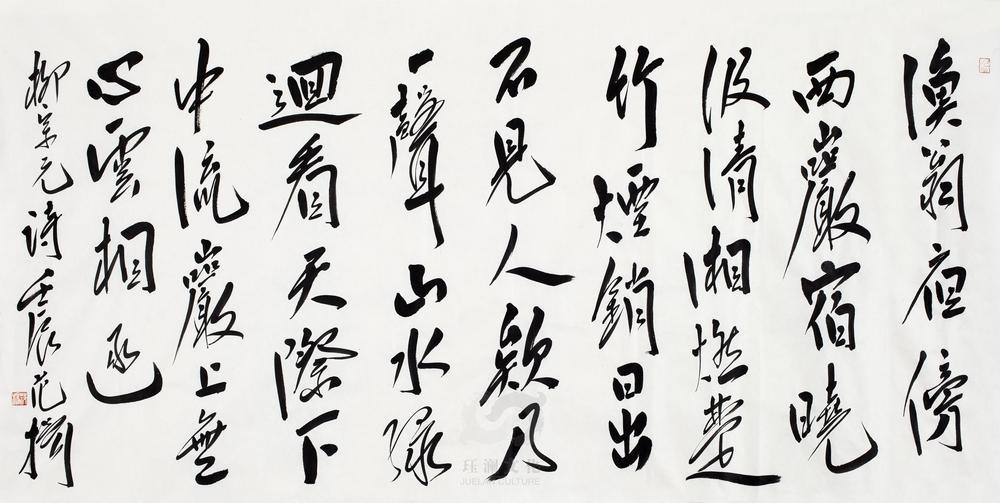 漁翁夜傍
西巖宿曉
汲清湘燃楚
竹煙銷日出
不見人欸乃
一聲山水綠
迴看天際下
中流巖上無
心雲相逐
柳宗元诗壬辰范
珏澜文化
JUELAN CULTURE